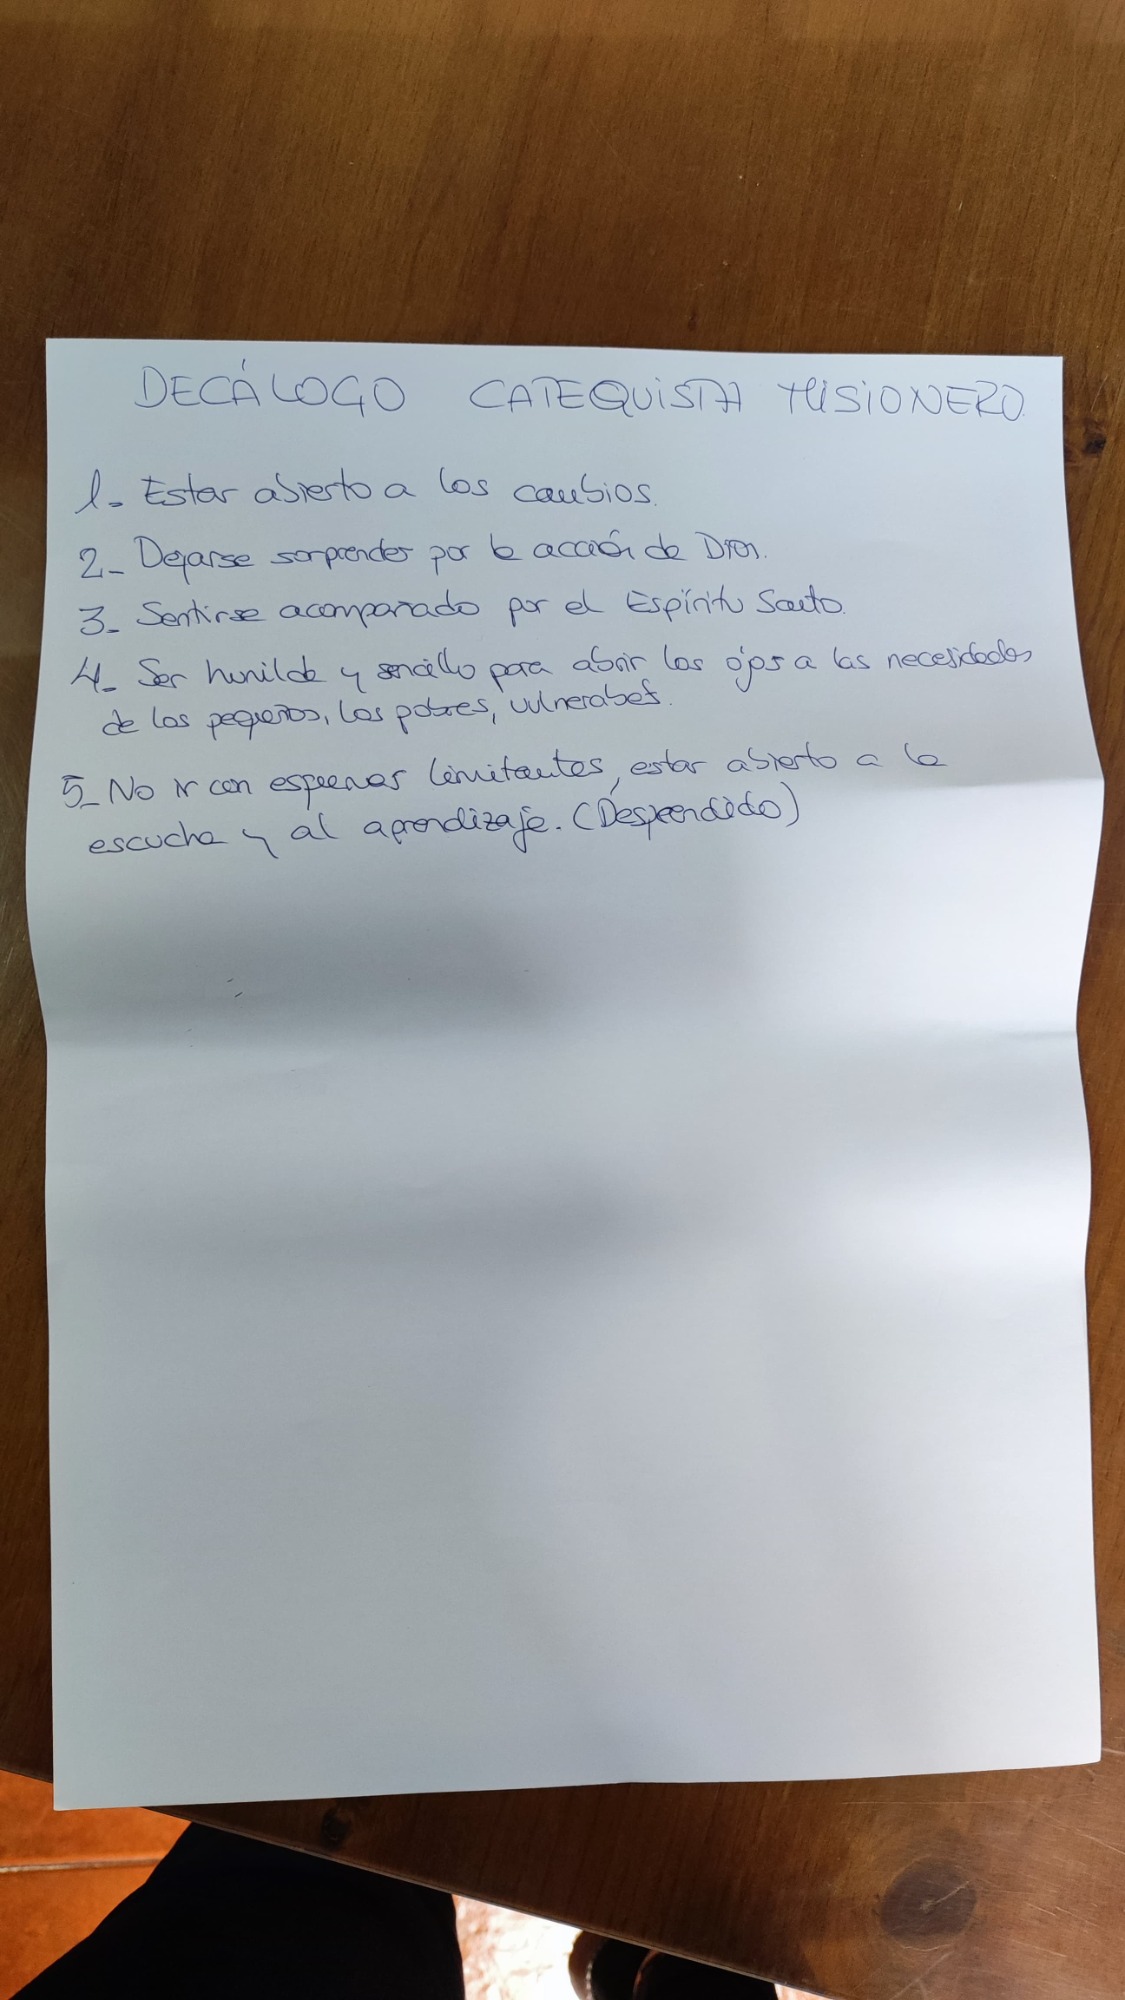 DECÁLOGO CATEQUISTA MISIONERO
1- Estar abierto a los cambios.
2- Dejarse sorprender por la acción de Dios.
3- Sentirse acompañado por el Espíritu Santo.
4- Ser humilde y sencillo para abrir los ojos a las necesidades
de los pequeños, los pobres, vulnerables.
5- No ir con esquemas limitantes, estar abierto a la
escucha y al aprendizaje. (Desprendido)